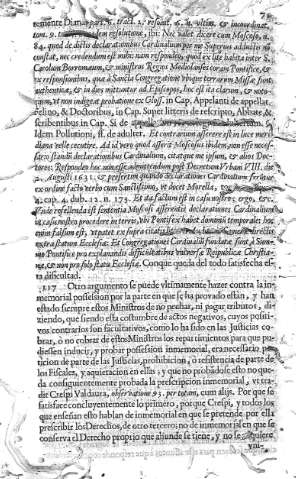 temente Diana part. 5. tract. 2. resolut.
ton. 9. eadem resolutione, ibi: Nec valet dicere cum Moscoso, n.
84. quod de dictis declarationibus Cardinalium per nos Superius adductis non
constat, nec credendum est nobis; nam respondeo, quod ex lite habita inter S.
Carolum Borromæum, & ministros Regios Mediolanses coram Pontifice, &
ex responsionibus, quæ à Sancta Congregatione ubique terrarum Missæ sunt
authenticæ, & in dies mittuntur ad Episcopos, hoc est ita clarum, & noto-
rium, ut non indigeat probatione ex Gloss. in Cap. Appellanti de appellat.
Felino, & Doctoribus, in Cap. Super litteris de rescriptis, Abbate, &
scribentibus in Cap. Si de
Idem Pollutioni, ff. de adulter. Et contrarium asserere est in luce meri-
diana velle cecutire. Ad id verò quod asserit Moscosus ibidem, non esse neces-
sario standum declarationibus Cardinalium, citatque me ipsum, & alios Doc-
tores: Respondeo hoc
Augusti 1631. & præsertim quando declarationes Cardinalium fuerunt
ex ordine facto verbo cum Sanctissimo, ut docet Morella,
4. cap. 4. dub. 12. n. 175. Et ita factum est in casu nostro: ergo, &c.
Unde refellenda est sententia Moscosi asserentis declarationes Cardinalium
in casu nostro procedere in terris, ubi Pontifex habet dominium temporale; hoc
enim falsum est, ut patet ex supra citatis
extra statum Ecclesiæ: Et Congregationes Cardinalium fundatæ sunt à Sum-
mo Pontifice pro explanandis difficultatibus universæ Reipublicæ Christia-
næ, & non pro solo statu Ecclesiæ. Conque queda del todo satisfecha es-
ta dificultad.
127 Otro argumento se puede ultimamente hazer contra la in-
memorial possession por la parte en que se ha provado estàn, y han
estado siempre estos Ministros de no pechar, ni pagar tributos, di-
ziendo, que siendo esta costumbre de actos negativos, cuyos positi-
vos contrarios son facultativos, como lo ha sido en las Justicias co-
brar, ò no cobrar de estos Ministros los repartimientos para que pu-
diessen inducir, y probar possession inmemorial, era necessario pe-
ticion de parte de las Justicias, prohibicion, ò resistencia de parte de
los Fiscales, y aquietacion en ellas; y que no probandose esto no que-
da consiguientemente probada la prescripcion inmemorial, ut tra-
dit Crespi Valdaura, observatione 93. per totam, cum alijs. Por que se
satisface concluyentemente lo primero, porque Crespi, y todos los
que enseñan esto hablan de inmemorial en que se pretende por ella
prescribir los Derechos, de otro tercero; no de inmemorial en que se
conserva el Derecho proprio que aliunde se tiene, y no se
viii-